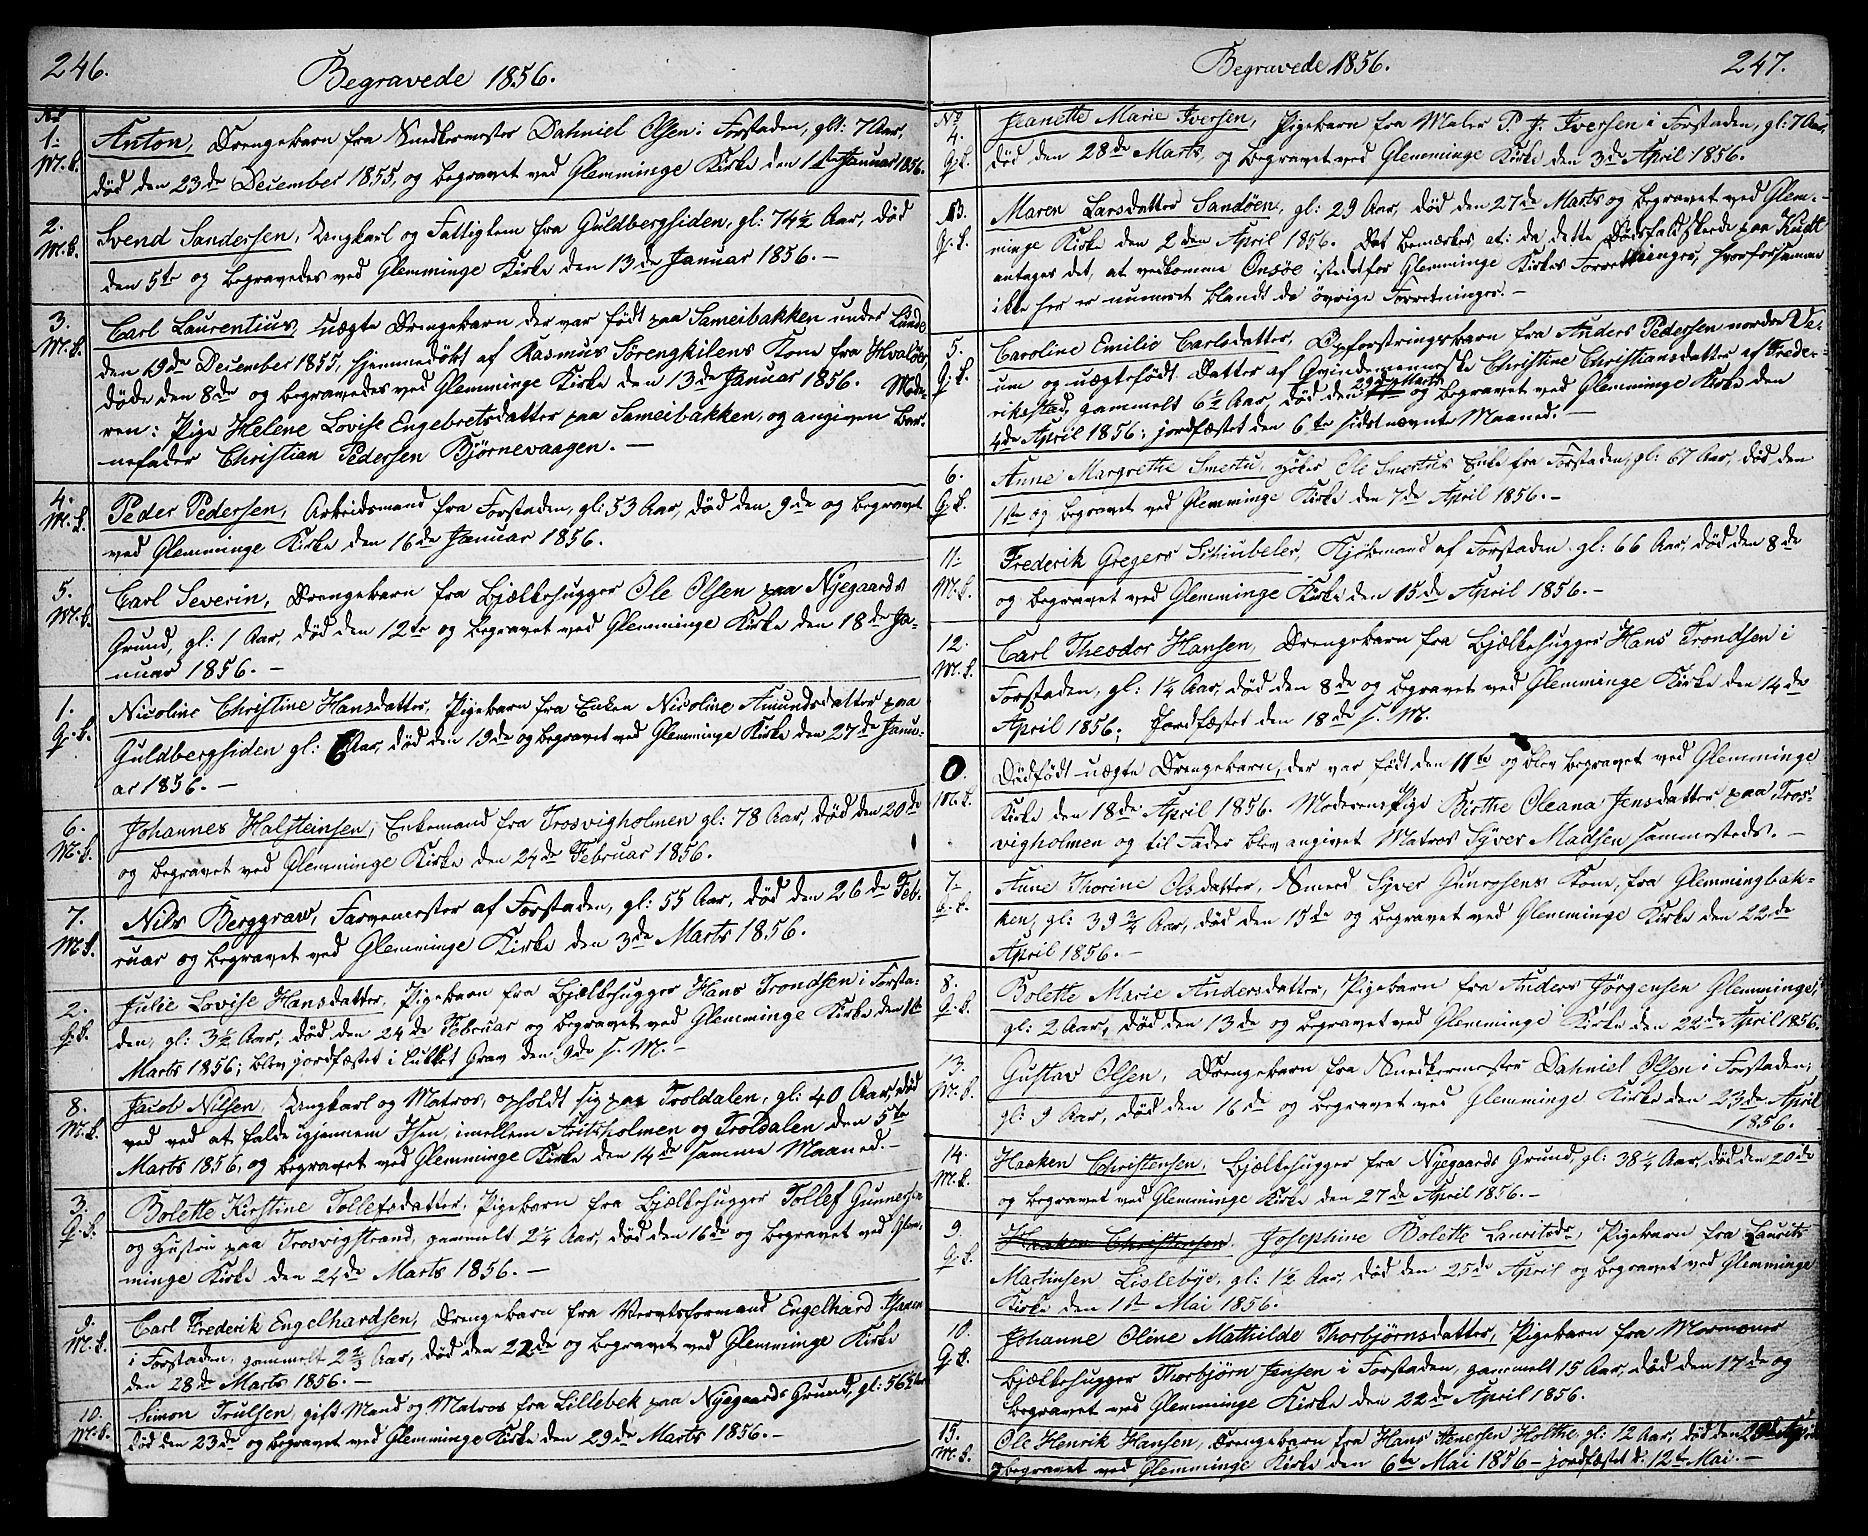 246.
Begravede 1856.
No
1.
M.k.
Anton, Drengebarn fra Snedkermester Dahniel Olsen i Forstaden, gl: 7 Aar,
død den 23de December 1855, og begravet ved Glemminge Kirke den 1ste Januar 1856.
2.
M.k.
Svend Sandersen, Ungkarl og Fattiglem fra Guldbergsiden, gl: 74½ Aar, død
den 5te og begravedes ved Glemminge Kirke den 13de Januar 1856.-
3.
M.k.
Carl Laurentius, uægte Drengebarn der var født paa Sameibakken under Lunde
den 19de December 1855, hjemmedøbt af Rasmus Sørengkilens Kone fra Hvaløer,
døde den 8de og begravedes ved Glemminge Kirke den 13de Januar 1856. Mode-
ren: Pige Helene Lovise Engebretsdatter paa Sameibakken, og angiven Bar-
nefader Christian Pedersen Bjørnevaagen.-
4.
M.k.
Peder Pedersen, Arbeidsmand fra Forstaden, gl: 53 Aar, død den 9de og begravet
ved Glemminge Kirke den 16de Januar 1856.
5.
M.k.
Carl Severin, Drengebarn fra Bjælkehugger Ole Olsen paa Nyegaards
Grund, gl: 1 Aar, død den 12te og begravet ved Glemminge Kirke den 18de Ja-
nuar 1856.-
1.
Q.k.
Nicoline Christine Hansdatter, Pigebarn fra Enken Nicoline Amundsdatter paa
Guldbergsiden gl: 6 Aar, død den 19de og begravet ved Glemminge Kirke den 27de Janu-
ar 1856.-
6.
M.k.
Johannes Halsteinsen, Enkemand fra Trosvigholmen gl: 78 Aar, død den 20de
og begravet ved Glemminge Kirke den 24de Februar 1856.
7.
M.k.
Nils Berggraw, Farvemester af Forstaden, gl: 55 Aar, død den 26de Feb-
ruar og begravet ved Glemminge Kirke den 3de Marts 1856.
2.
Q.k.
Julie Lovise Hansdatter, Pigebarn fra Bjælkehugger Hans Trondsen i Forsta-
den, gl: 3½ Aar, død den 24de Februar og begravet ved Glemminge Kirke den 1ste
Marts 1856; blev jordfæstet i lukket Grav den 9de s. M.-
8.
M.k.
Jacob Nilsen, Ungkarl og Matros, opholdt sig paa Troldalen, gl: 40 Aar, død
ved ved at falde igjennem Isen, imellem Aritsholmen og Troldalen den 5te
Marts 1856, og begravet ved Glemminge Kirke den 14de samme Maaned.-
3.
Q.k.
Bolette Kirstine Tollefsdatter, Pigebarn fra Bjælkehugger Tollef Gunnersen
og Hustru paa Trosvigstrand, gammelt 2¼ Aar, død den 16de og begravet ved Glem-
minge Kirke den 24de Marts 1856.-
9.
M.k.
Carl Frederik Engelhardsen, Drengebarn fra Verftsformand Engelhard
i Forstaden, gammelt 2⅔ Aar, død den 22de og begravet ved Glemminge Kirke
den 28de Marts 1856.-
10.
M.k.
Simon Trulsen, gift Mand og Matros fra Lillebek paa Nyegaards Grund, gl: 56½
død den 23de og begravet ved Glemminge Kirke den 29de Marts 1856.-
Begravede 1856.
247.
No
4.
Q.k.
Jeanette Marie Iversen, Pigebarn fra Maler P. J. Iversen i Forstaden, gl: 7 Aar,
død den 28de Marts, og begravet ved Glemminge Kirke den 3de April 1856.
NB.
Q.k.
Maren Larsdatter Sandøen, gl: 29 Aar, død den 27de Marts og begravet ved Glem-
minge Kirke den 2den April 1856. Det bemærkes, at: da dette Dødsfald skede paa
antages det, at vedkomme Onsøe istedetfor Glemminge Kirkes Forretninger, hvorfor samme
ikke her er numeret blandt de øvrige Forretninger.-
5.
Q.k.
Caroline Emilie Carlsdatter, Opfostringsbarn fra Anders Pedersen nordre Ve-
um og uægtefødt Datter af Qvindemenneske Christine Christiansdatter af Frede-
rikstad, gammelt 6½ Aar, død den 29de Marts og begravet ved Glemminge Kirke den
4de April 1856; jordfæstet den 6te sidstnævnte Maaned.-
6.
Q.k.
Anne Margrethe Smertu, Ole Smertus Enke fra Forstaden, gl: 67 Aar, død den
1ste og begravet ved Glemminge Kirke den 7de April 1856.-
11.
M.k.
Frederik Gregers Schiubeler, Kjøbmand af Forstaden gl: 66 Aar, død den 8de
og begravet ved Glemminge Kirke den 15de April 1856.-
12.
M.k.
Carl Theodor Hansen, Drengebarn fra Bjælkehugger Hans Trondsen i
Forstaden, gl: 1¼ Aar, død den 8de og begravet ved Glemminge Kirke den 14de
April 1856; Jordfæstet den 18de s. M.
0.
M.k.
Dødfødt uægte Drengebarn, der var født den 11te og blev begravet ved Glemminge
Kirke den 18de April 1856. Moderen: Pige Birthe Oleana Jensdatter paa Tros-
vigholmen og til Fader blev angivet Matros Syver Madsen sammesteds.-
7.
Q.k.
Anne Thorine Olsdatter, Smed Syver Kone, fra Glemmingbak-
ken, gl: 39¾ Aar, død den 15de og begravet ved Glemminge Kirke den 22de
April 1856.-
8.
Q.k.
Bolette Marie Andersdatter, Pigebarn fra Anders Jørgensen Glemminge,
gl: 2 Aar, død den 13de og begravet ved Glemminge Kirke den 22de April 1856.
13.
M.k.
Gustav Olsen, Drengebarn fra Snedkermester Dahniel Olsen i Forstaden,
gl: 9 Aar, død den 16de og begravet ved Glemminge Kirke den 23de April
1856.
14.
M.k.
Haaken Christensen, Bjælkehugger fra Nyegaards Grund, gl: 38¼ Aar, død den 20de
og begravet ved Glemminge Kirke den 27de April 1856.-
9.
Q.k.
Haaken Christensen, Josephine Bolette Lauritsdr, Pigebarn fra Laurits
Martinsen Lislebye, gl: 1½ Aar, død den 25de April og begravet ved Glemminge
Kirke den 1ste Mai 1856.
10.
Q.k.
Johanne Oline Mathilde Thorbjørnsdatter, Pigebarn fra Mormoner
Bjælkehugger Thorbjørn Jensen i Forstaden, gammelt 15 Aar, død den 17de og
begravet ved Glemminge Kirke den 22de April 1856.
15.
M.k.
Ole Henrik Hansen, Drengebarn fra Hans Holthe, gl: 12 Aar, død den 29de April
begravet ved Glemminge Kirke den 6te Mai 1856 - jordfæstet d: 12te Mai.-